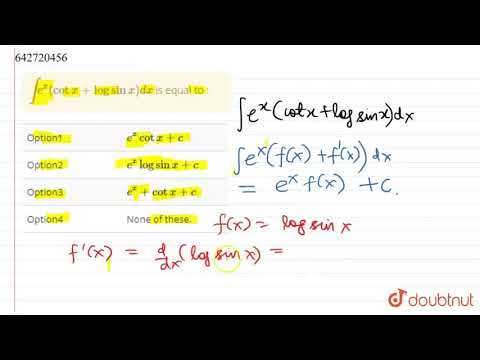 642720456
∫eˣ(cot x + log sin x)dx is equal to :
Option1 eˣ cot x + c
Option2 eˣ log sin x + c
Option3 eˣ + cot x + c
Option4 None of these.
∫eˣ(cotx+log sinx)dx
∫eˣ(f(x) + f'(x)) dx
= eˣ f(x) + c.
f(x) = log sin x
f'(x) = d/dx (log sin x) =
doubtnut